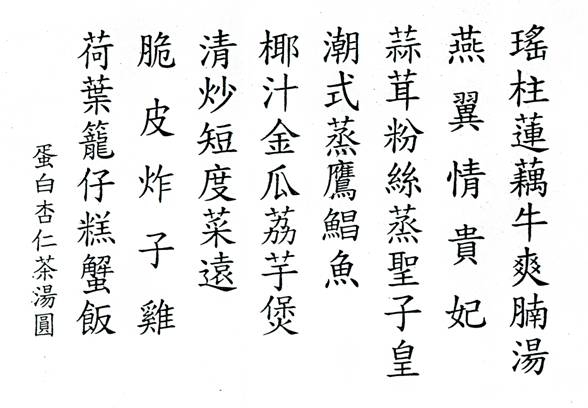 瑤柱蓮藕牛爽腩湯
燕翼情貴妃
蒜茸粉絲蒸聖子皇
潮式蒸鷹鯧魚
椰汁金瓜荔芋煲
清炒短度菜遠
脆皮炸子雞
荷葉籠仔糕蟹飯
蛋白杏仁茶湯圓